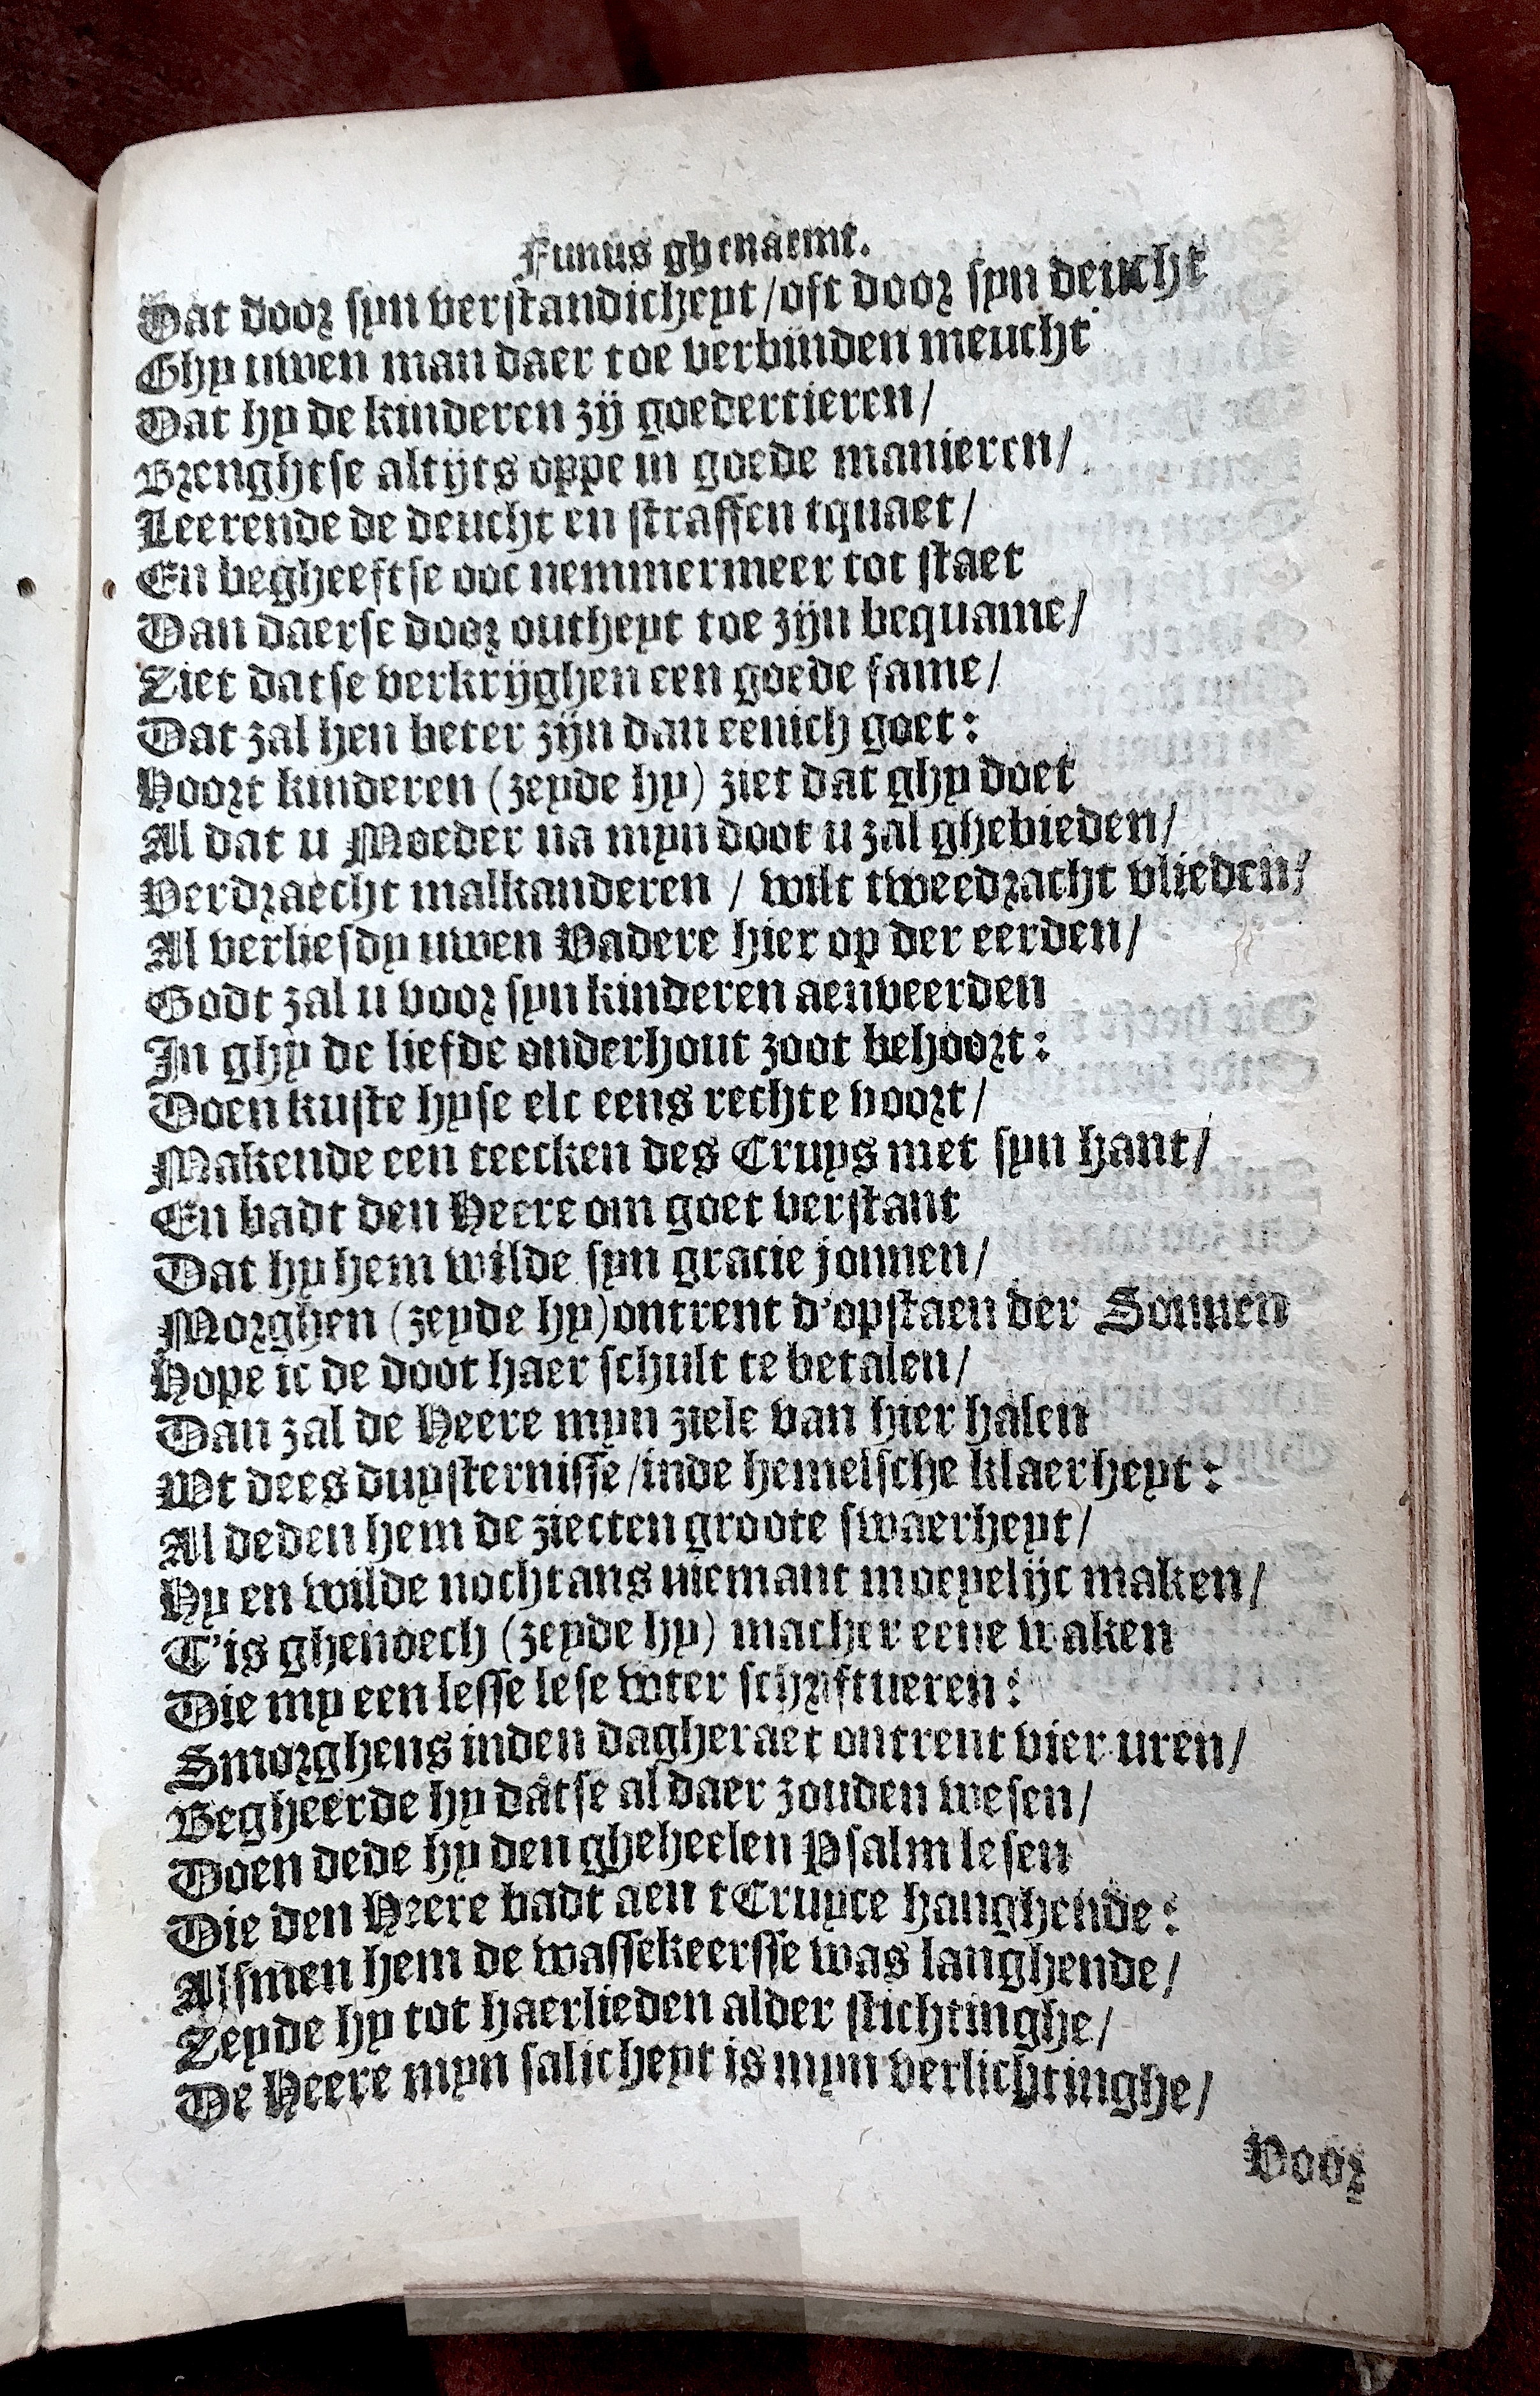 Funus ghenaemt.
Dat door syn verstandicheyt/oft door syn deucht
Ghy uwen man daer toe verbinden meucht
Dat hy de kinderen zij goedertieren/
Brenghtse altijts oppe in goede manieren/
Leerende de deucht en straffen tquaet/
En begheeftse ooc nemmermeer tot staet
Dan daerse door outheyt toe zijn bequame/
Ziet datse verkrijghen een goede fame/
Dat zal hen beter zijn dan eenich goet:
Hoort kinderen (zeyde hy) ziet dat ghy doet
Al dat u Moeder na myn doot u zal ghebieden/
Verdraecht malkanderen / wilt tweedracht vlieden/
Al verliesdy uwen Vadere hier op der eerden/
Godt zal u voor syn kinderen aenveerden
In ghy de liefde onderhout zoot behoort:
Doen kuste hyse elc eens rechte voort/
Makende een teecken des Cruys met syn hant/
En badt den Heere om goet verstant
Dat hy hem wilde syn gracie jonnen/
Morghen (zeyde hy) ontrent d'opstaen der Sonnen
Hope ic de doot haer schult te betalen/
Dan zal de Heere myn ziele van hier halen
Wt dees duysternisse/inde hemelsche klaerheyt:
Al deden hem de ziecten groote swaerheyt/
Hy en wilde nochtans niemant moeyelijc maken/
T'is ghenoech (zeyde hy) macher eene waken
Die my een lesse lese wter schriftueren:
Smorghens inden dagheraet ontrent vier uren/
Begheerde hy datse aldaer zouden wesen/
Doen dede hy den gheheelen Psalm lesen
Die den Heere badt aen t Cruyce hanghende:
Alsmen hem de wassekeersse was langhende/
Zeyde hy tot haerlieden alder stichtinghe/
De Heere myn salicheyt is myn verlichtinghe/
Voor